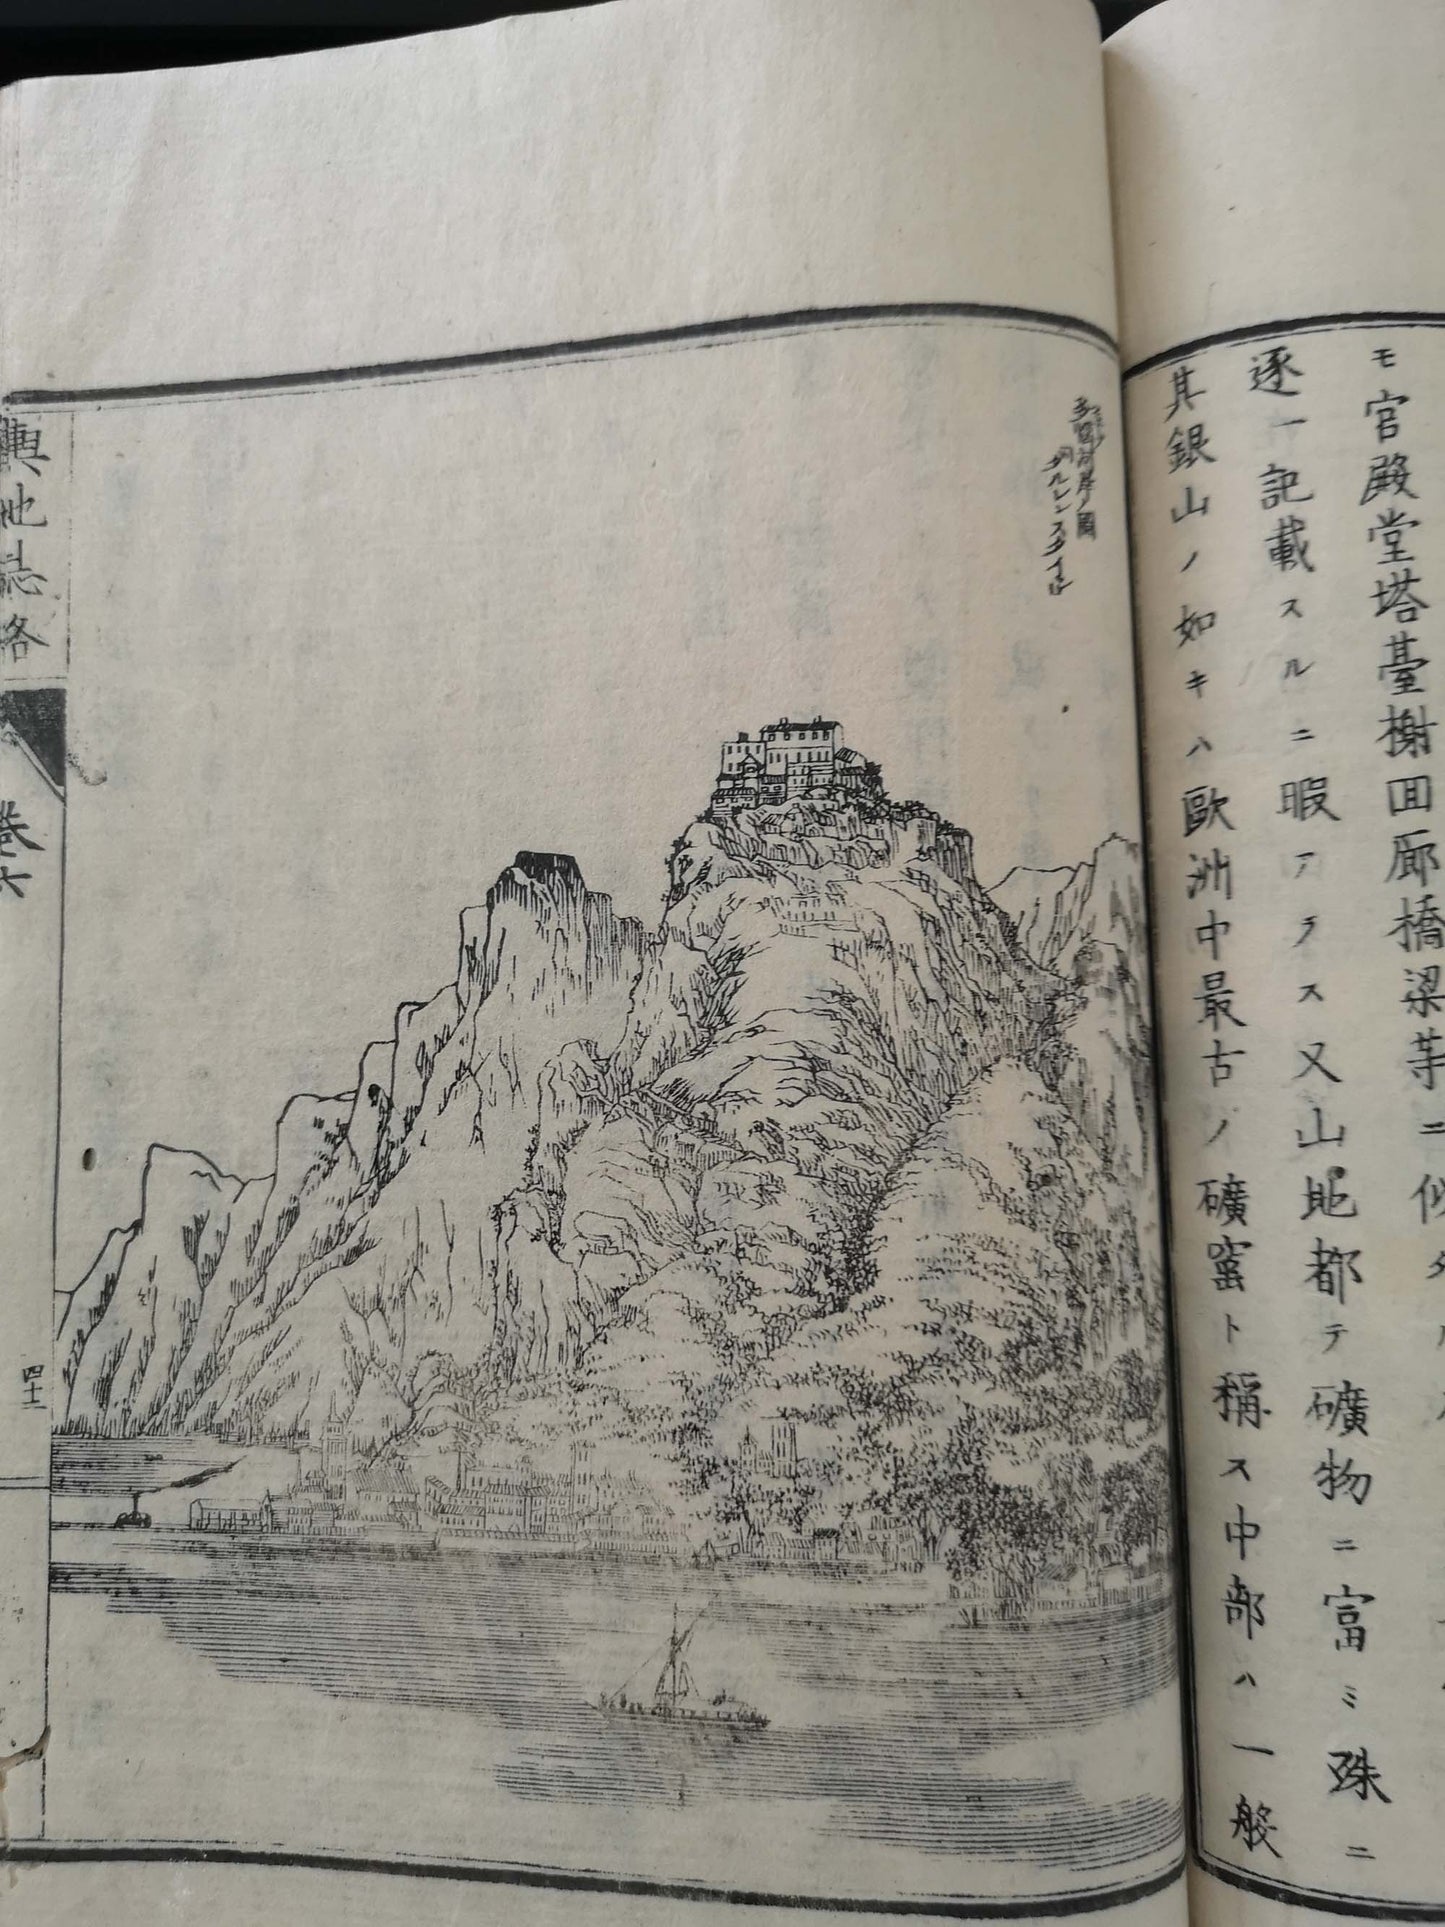 モ官殿堂塔臺榭囬廊橋梁䓁ニ似タル
逐一記載スルニ暇アラス又山地都テ礦物ニ富ミ殊ニ
其銀山ノ如キハ歐洲中最古ノ礦窰ト稱ス中部ハ一般
河岸ノ圖
ダルレンスタイン
輿地誌略
卷六
四十二